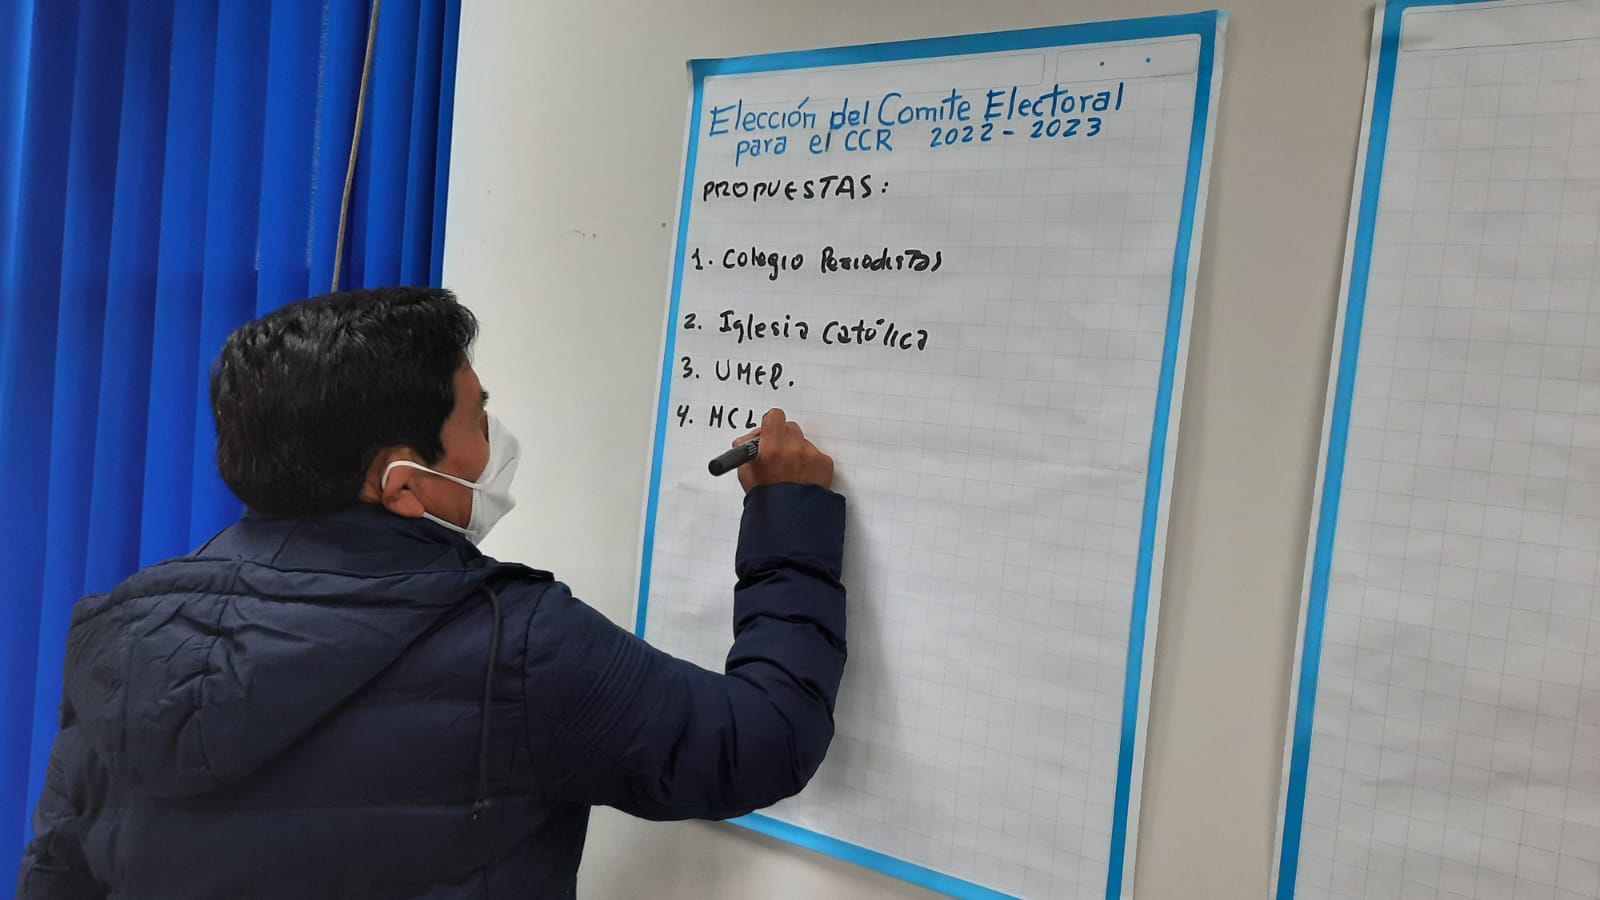 Elección del Comite Electoral
para el CCR 2022-2023
PROPUESTAS:
1. Colegio Periodistas
2. Iglesia Católica
3. UMER.
4. MCL